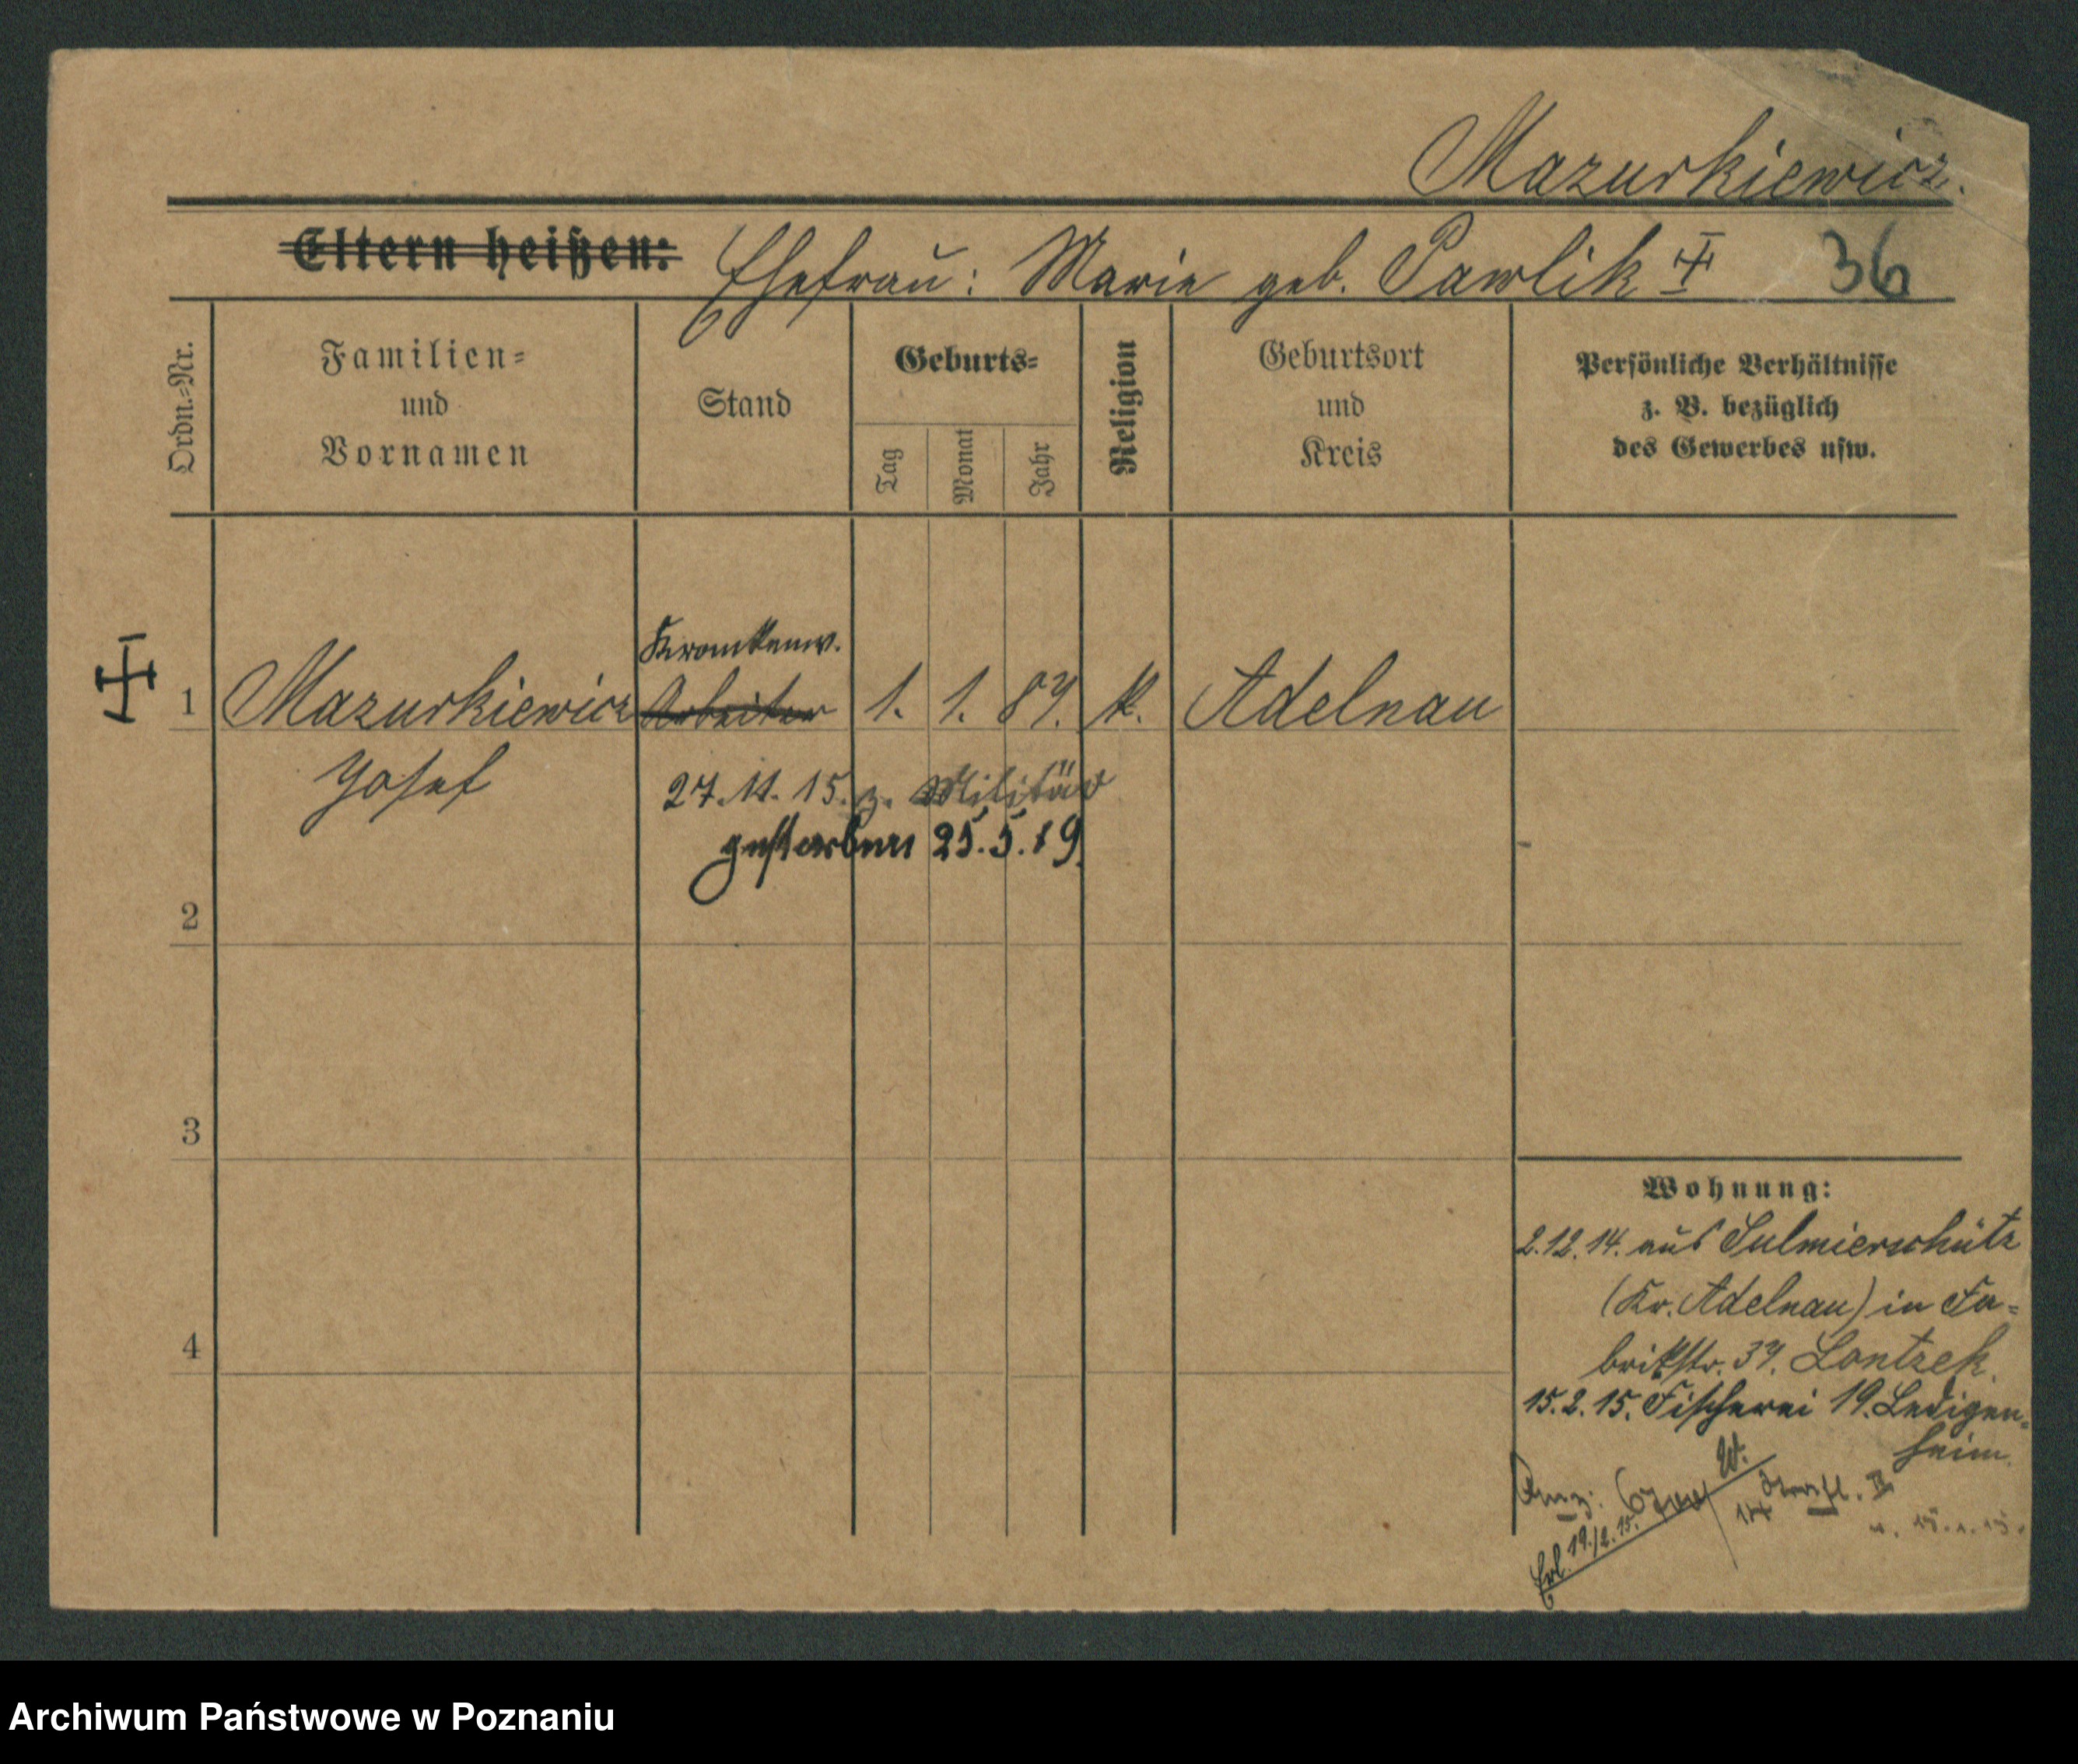 Mazurkiewicz.
Eltern heißen: Ehefrau: Marie geb. Pawlik 36
Ordn.-Nr.
Familien-
und
Vornamen
Stand
Geburts-
Tag
Monat
Jahr
Religion
Geburtsort
und
Kreis
Persönliche Verhältnisse
z. B. bezüglich
des Gewerbes usw.
Krankenw.
1 Mazurkiewicz Arbeiter 1. 1. 87. k. Adelnau
Josef
27.11.15. z. Militär
gestorben 25.5.19.
2
3
4
Wohnung:
2.12.14. aus Sulmierschütz
(Kr. Adelnau) in Fa-
brikstr. 37. Lontzek.
15.2.15. Fischerei 19. Ledigen-
heim.
Erl. 19./2. 15.
Archiwum Państwowe w Poznaniu